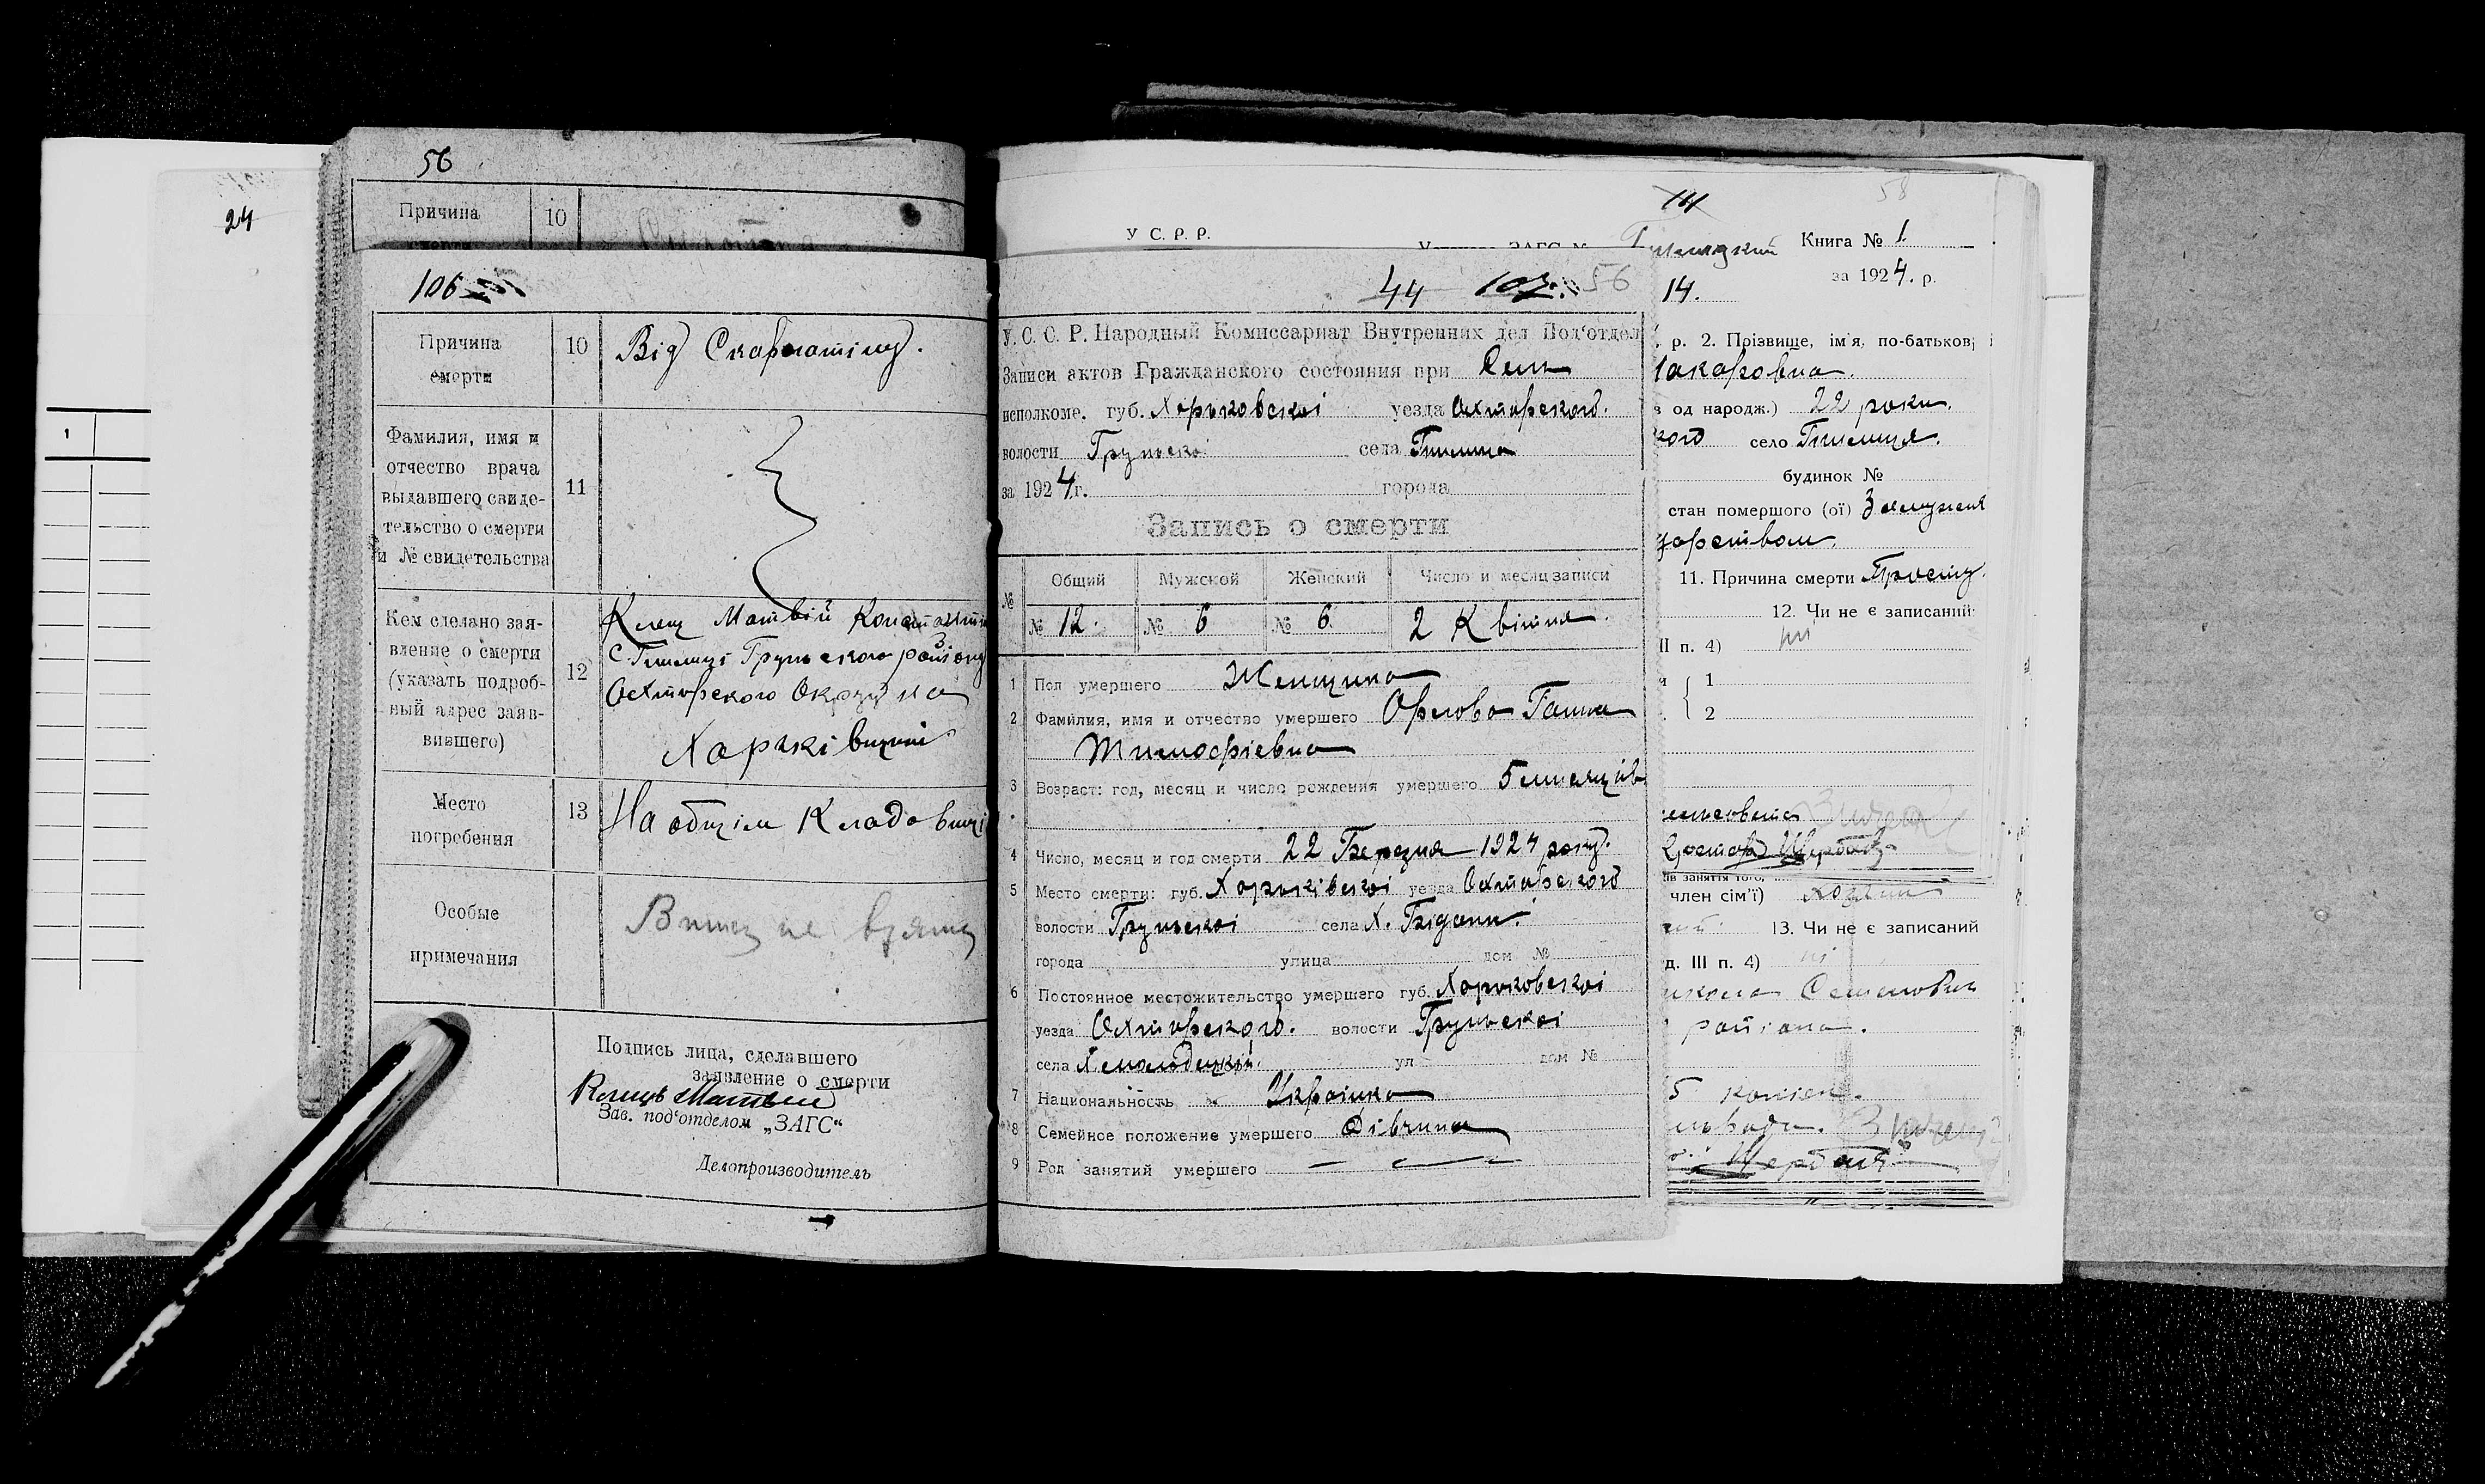 24
1
56
Причина
10
106
Причина
смерти
10
Від Скарлатіну.
Фамилия, имя и
отчество врача
выдавшего свиде-
тельство о смерти
и № свидетельства
11
Кем сделано зая-
вление о смерти
(указать подроб-
ный адрес заяв-
вившего)
12
Клец Матвій
Грунського району
Охтирського Округу на
Харьківщині
Место
погребения
13
На общім Кладовищі
Особые
примечания
Витяг не взятий
Подпись лица, сделавшего
заявление о смерти
Матвей
Зав. под'отделом „ЗАГС“
Делопроизводитель
У С. Р. Р.
14
58
Книга № 1.
за 1924. р.
14.
44 107. 56
У. С. С. Р. Народный Комиссариат Внутренних дел Под'отдел
Записи актов Гражданского состояния при Сель
исполкоме. губ. Харьковскої уезда Охтирского.
волости Грунскої села
за 1924 г. города
Запись о смерти
№ Общий Мужской Женский Число и месяц записи
№ 12. № 6 № 6. 2 Квітня.
1 Пол умершего Женщина
2 Фамилия, имя и отчество умершего Орлова Ганна
Тимофіевна
3 Возраст: год, месяц и число рождения умершего 5 місяців
4 Число, месяц и год смерти 22 Березня 1924 року.
5 Место смерти: губ. Харьківскої уезда Охтирского
волости Грунскої села Х. Бідани.
города улица дом №
6 Постоянное местожительство умершего губ. Харьковскої
уезда Охтирского. волости Грунскої
села ул дом №
7 Национальность Українка
8 Семейное положение умершего Дівчина
9 Род занятий умершего —
р. 2. Прізвище, ім'я, по-батькові
акаровна.
од народж.) 22 роки.
село
будинок №
стан помершого (ої) Замужня
11. Причина смерти
12. Чи не є записаний
ІІ п. 4) ні
1
2
член сім'ї)
13. Чи не є записаний
д. III п. 4) ні
району.
5 копієк.